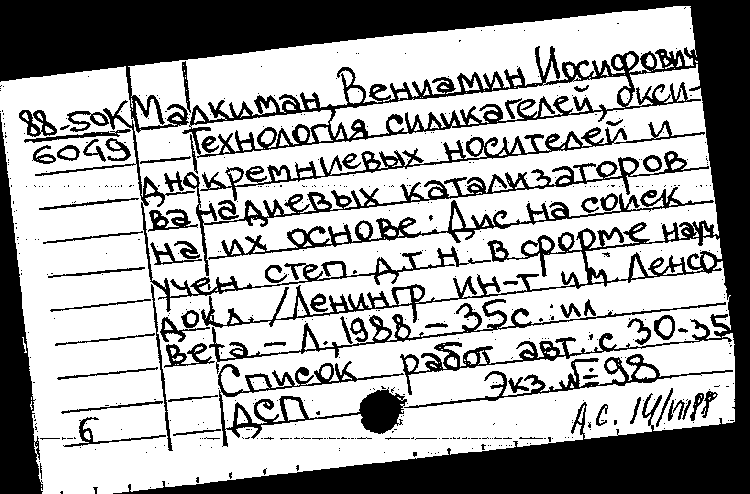 88-50К Малкиман, Вениамин Иосифович
6049 Технология силикагелей, окси-
днокремниевых носителей и
ванадиевых катализаторов
на их основе: Дис. на соиск.
учен. степ. д.т.н. в форме науч.
докл. /Ленингр. ин-т им. Ленсо-
вета. – Л., 1988. – 35с.: ил.
Список работ авт.: с. 30-35
ДСП. Экз. № 98
6 А.С. 14/VII88